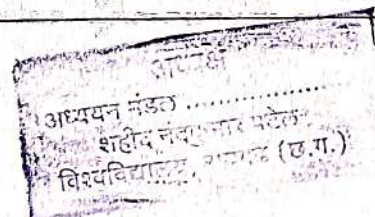 अध्यक्ष
अध्ययन मंडल ....................
शहीद नंदकुमार पटेल
विश्वविद्यालय, (छ.ग.)